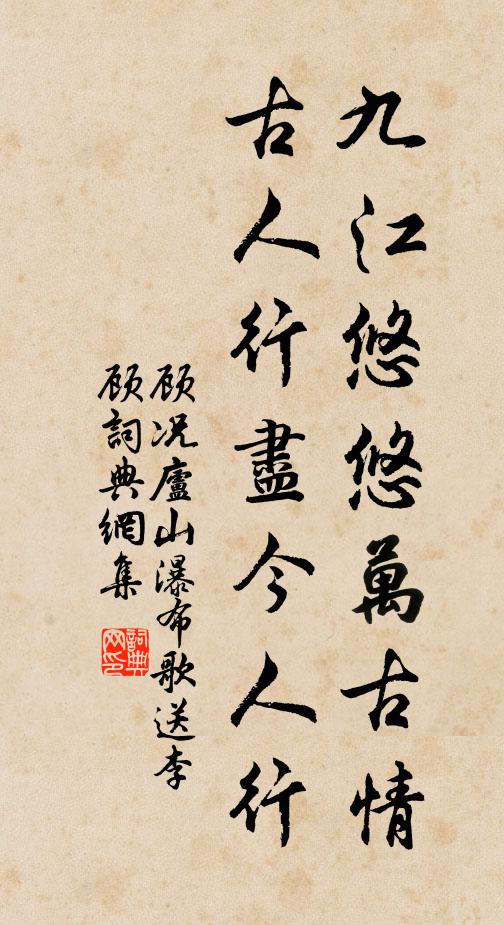 九江悠悠萬古情
古人行盡今人行
顾况廬山瀑布歌送李
顾詞典網集
詞典网印